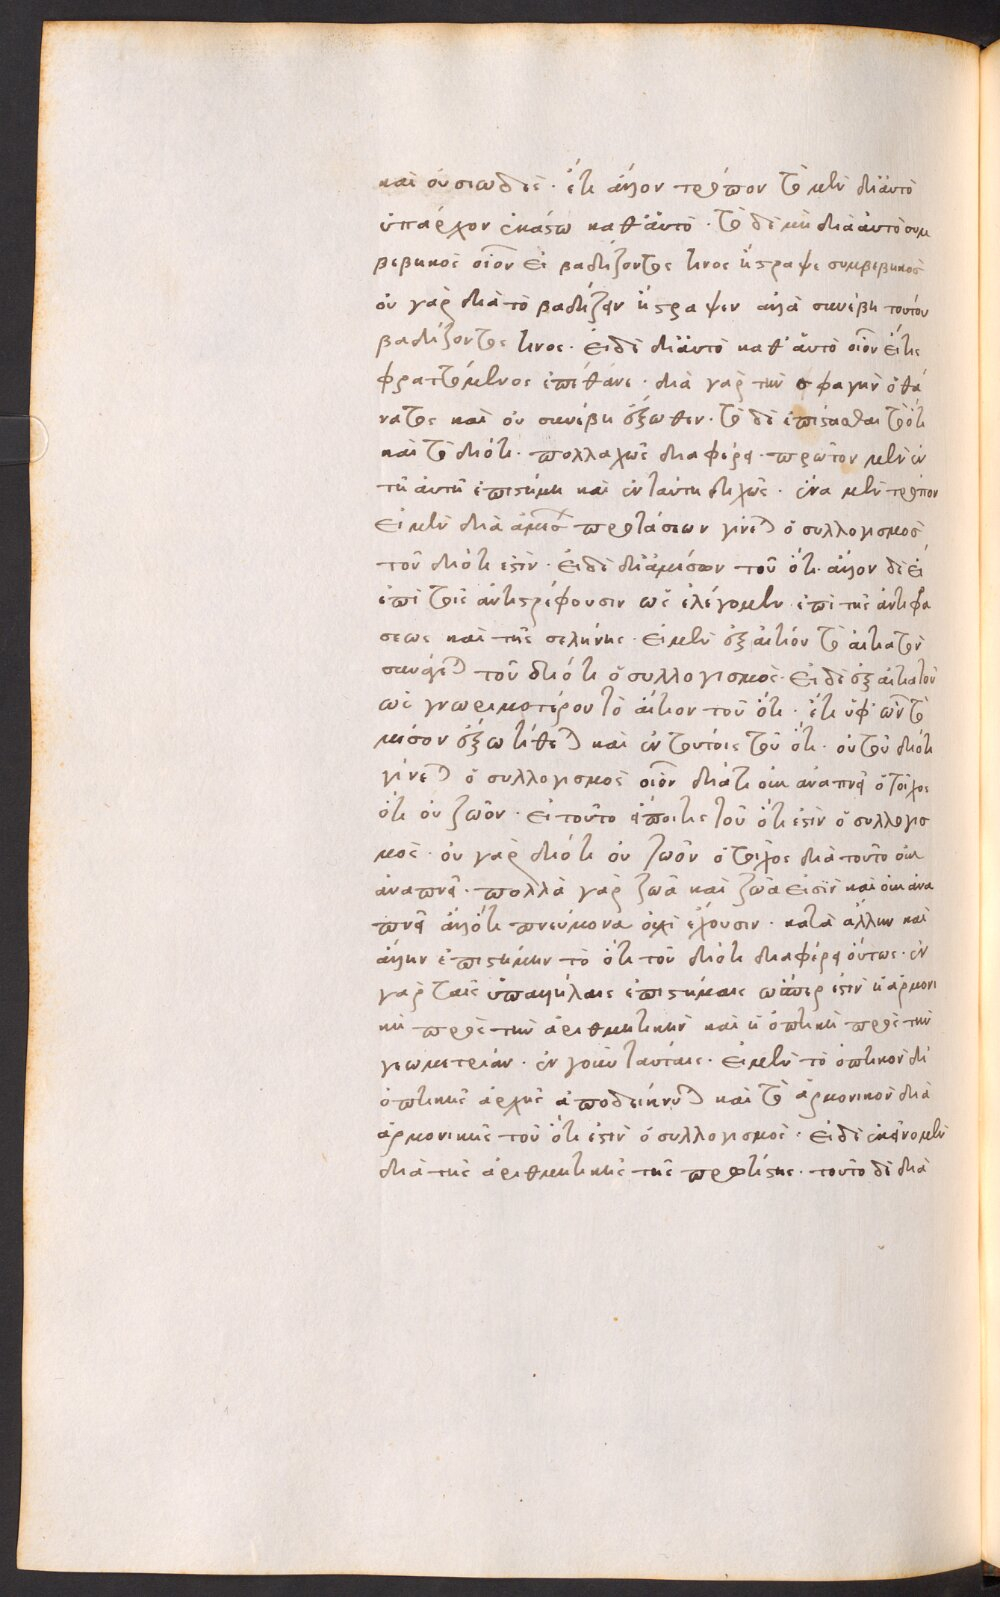 καὶ οὐσιωδες· ἔτι ἄλλον τρόπον τὸ μὲν δι' αὐτὸ
ὑπάρχον ἑκάστω καθ' αὑτὸ· τὸ δὲ μὴ διὰ αὐτὸ συμ
βεβηκὸς οἷον εἰ βαδίζοντος τινος ἤστραψε συμβεβηκὸς
οὐ γὰρ διὰ τὸ βαδίζειν ἤστραψεν ἀλλὰ συνέβη τοῦτον
βαδίζοντος τινος· εἰ δὲ δι' αὐτὸ καθ' αὑτὸ οἷον εἴ τις
σφραττόμενος ἀπέθανε· διὰ γὰρ τὴν σφαγὴν ὁ θά
νατος καὶ οὐ συνέβη ἔξωθεν· τὸ δὲ ἐπίστασθαι τὸ ὅτι
καὶ τὸ διότι· πολλαχῶς διαφέρει· πρῶτον μὲν ἐν
τῆ αὐτῆ ἐπιστήμη καὶ ἐν ταύτη διχῶς· ἕνα μὲν τρόπον
εἰ μὲν διὰ ἀμέσων προτάσεων γίνεται ὁ συλλογισμὸς
τοῦ διότι ἐστὶν· εἰ δὲ δι' ἀμέσων τοῦ ὅτι· ἄλλον δὲ εἰ
ἐπὶ τοῖς ἀντιστρέφουσιν ὡς ἐλέγομεν ἐπὶ τῆς ἀντιφά
σεως καὶ τῆς σελήνης· εἰ μὲν ἐξ αἰτίου τὸ αἰτιατὸν
συνάγεται τοῦ διότι ὁ συλλογισμὸς· εἰ δὲ ἐξ αἰτιατοῦ
ὡς γνωριμοτέρου τὸ αἴτιον τοῦ ὅτι· ἔτι ἐφ' ὧν τὸ
μέσον ἔξω τίθεται καὶ ἐν τούτοις τοῦ ὅτι· οὐ τοῦ διότι
γίνεται ὁ συλλογισμὸς οἷον διὰ τι οὐκ ἀναπνεῖ ὁ τοῖχος
ὅτι οὐ ζῶον· εἰ τοῦτο εἴποι τις τοῦ ὅτι ἐστὶν ὁ συλλογισ
μὸς· οὐ γὰρ διότι οὐ ζῶον ὁ τοῖχος διὰ τοῦτο οὐκ
ἀναπνεῖ· πολλὰ γὰρ ζῶα καὶ ζῶά εἰσὶν καὶ οὐκ ἀνα
πνεῖ ἀλλ' ὅτι πνεύμονα οὐχὶ ἔχουσιν· κατὰ ἄλλην καὶ
ἄλλην ἐπιστήμην τὸ ὅτι τοῦ διότι διαφέρει οὕτως· ἐν
γὰρ ταῖς ὑπαλλήλαις ἐπιστήμαις ὥσπερ ἐστὶν ἡ ἁρμονι
κὴ πρὸς τὴν ἀριθμητικὴν καὶ ἡ ὀπτικὴ πρὸς τὴν
γεωμετρίαν· ἐν γοῦν ταύταις· εἰ μὲν τὸ ὀπτικὸν δι'
ὀπτικῆς ἀρχῆς ἀποδείκνυται καὶ τὸ ἁρμονικὸν διὰ
ἁρμονικῆς τοῦ ὅτι ἐστὶν ὁ συλλογισμὸς· εἰ δὲ ἐκεῖνο μὲν
διὰ τῆς ἀριθμητικῆς τῆς πρωτίστης· τοῦτο δὲ διὰ